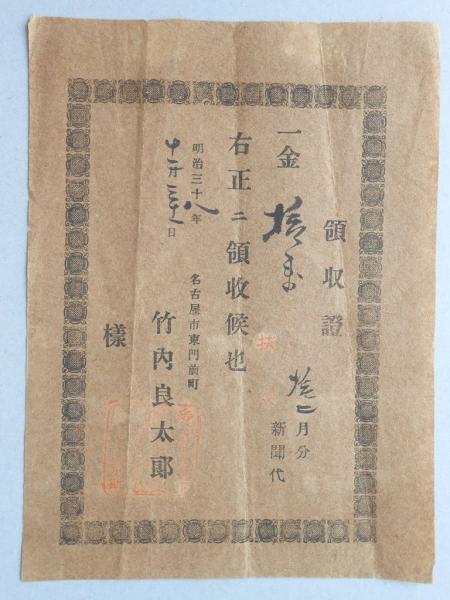 領収證
拾二月分
新聞代
一金拾
右正ニ領收候也
明治三十八年
十二月日
名古屋市東門前町
竹内良太郎
樣
扶